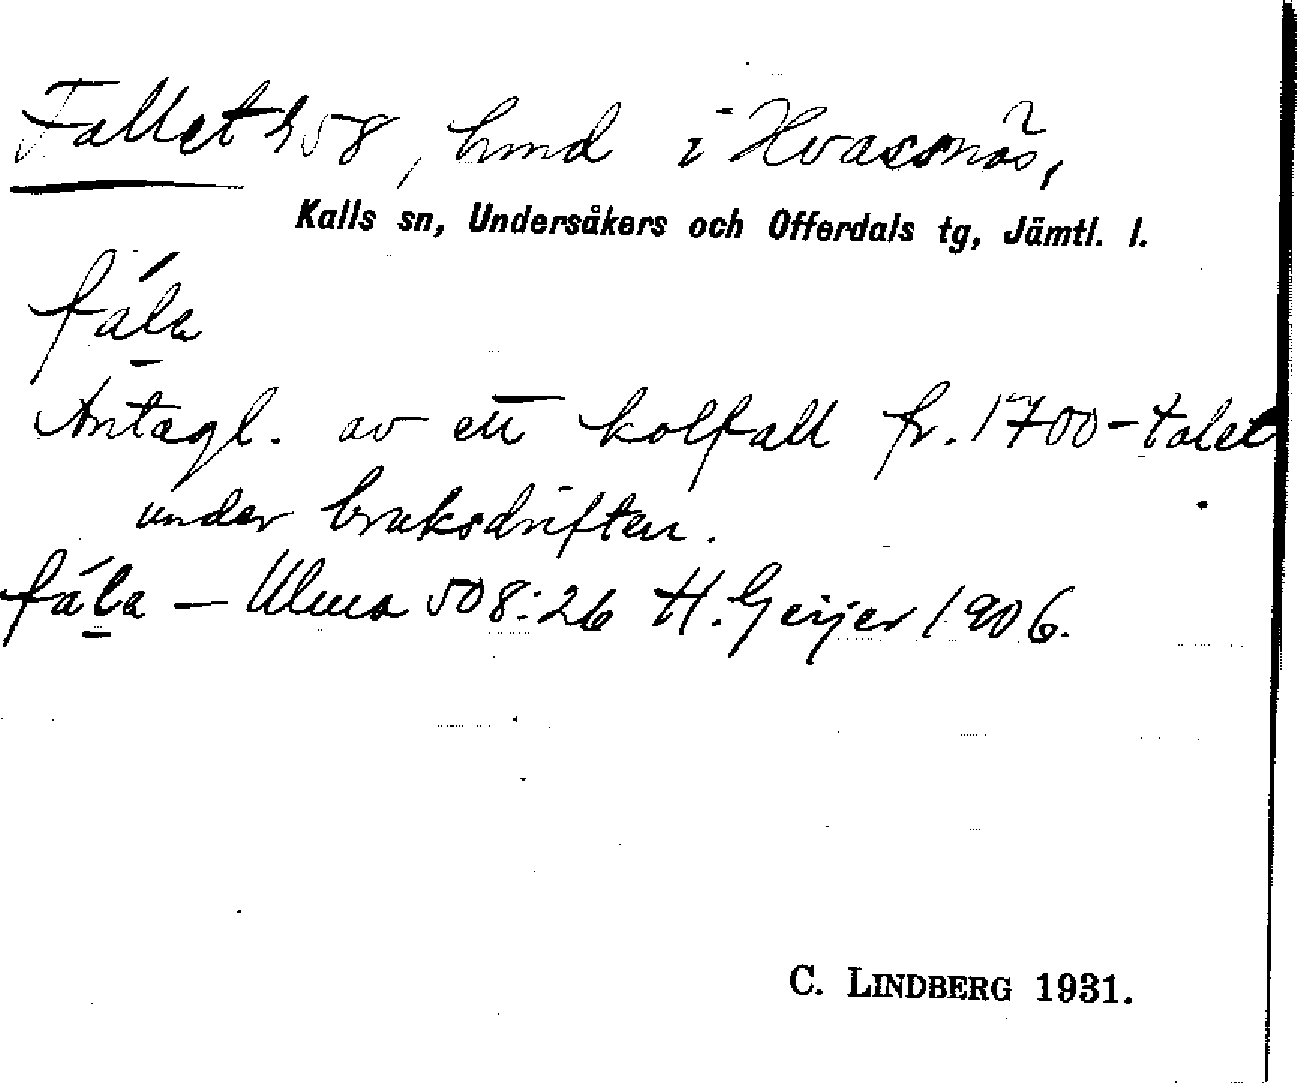 Fallet 458, hmd i Hvassnäs,
Kalls sn, Undersåkers och Offerdals tg, Jämtl. l.
fála
Antagl. av ett kolfall fr. 1700-talet
under bruksdriften.
fála – Ulma 508:26 H. Geijer 1906.
C. LINDBERG 1931.